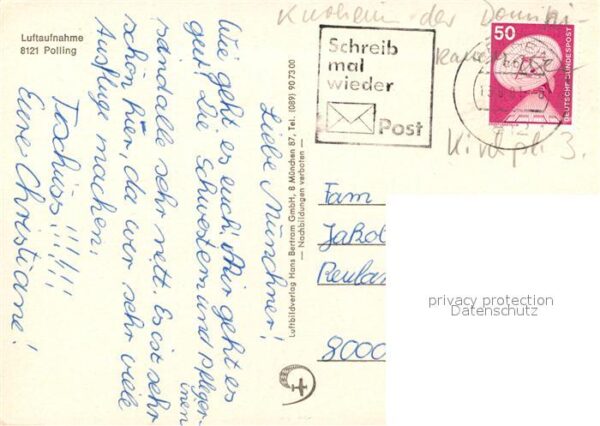 Luftaufnahme
8121 Polling
Liebe Münchner!
Wie geht es euch. Mir geht es
gut. Die Schwestern und Pfleger-
innen
sind alle sehr nett. Es ist sehr
schön hier, da wir sehr viele
Ausflüge machen.
Tschüss!!!!!!
Eure Christiane!
Luftbildverlag Hans Bertram GmbH, 8 München 87, Tel. (089) 90 73 00
— Nachbildungen verboten —
Schreib
mal
wieder
Post
50
DEUTSCHE BUNDESPOST
der Domini-
Kirchpl. 3.
Fam
Jakob
8000
privacy protection
Datenschutz